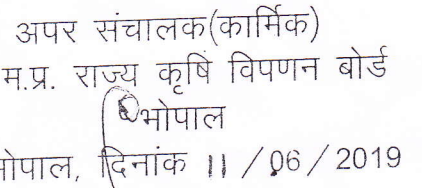 अपर संचालक(कार्मिक)
म.प्र. राज्य कृषि विपणन बोर्ड
भोपाल
भोपाल, दिनांक 11 / 06 / 2019